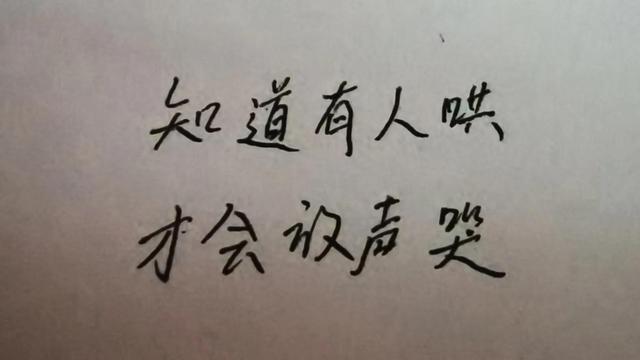 知道有人哄
才会放声哭